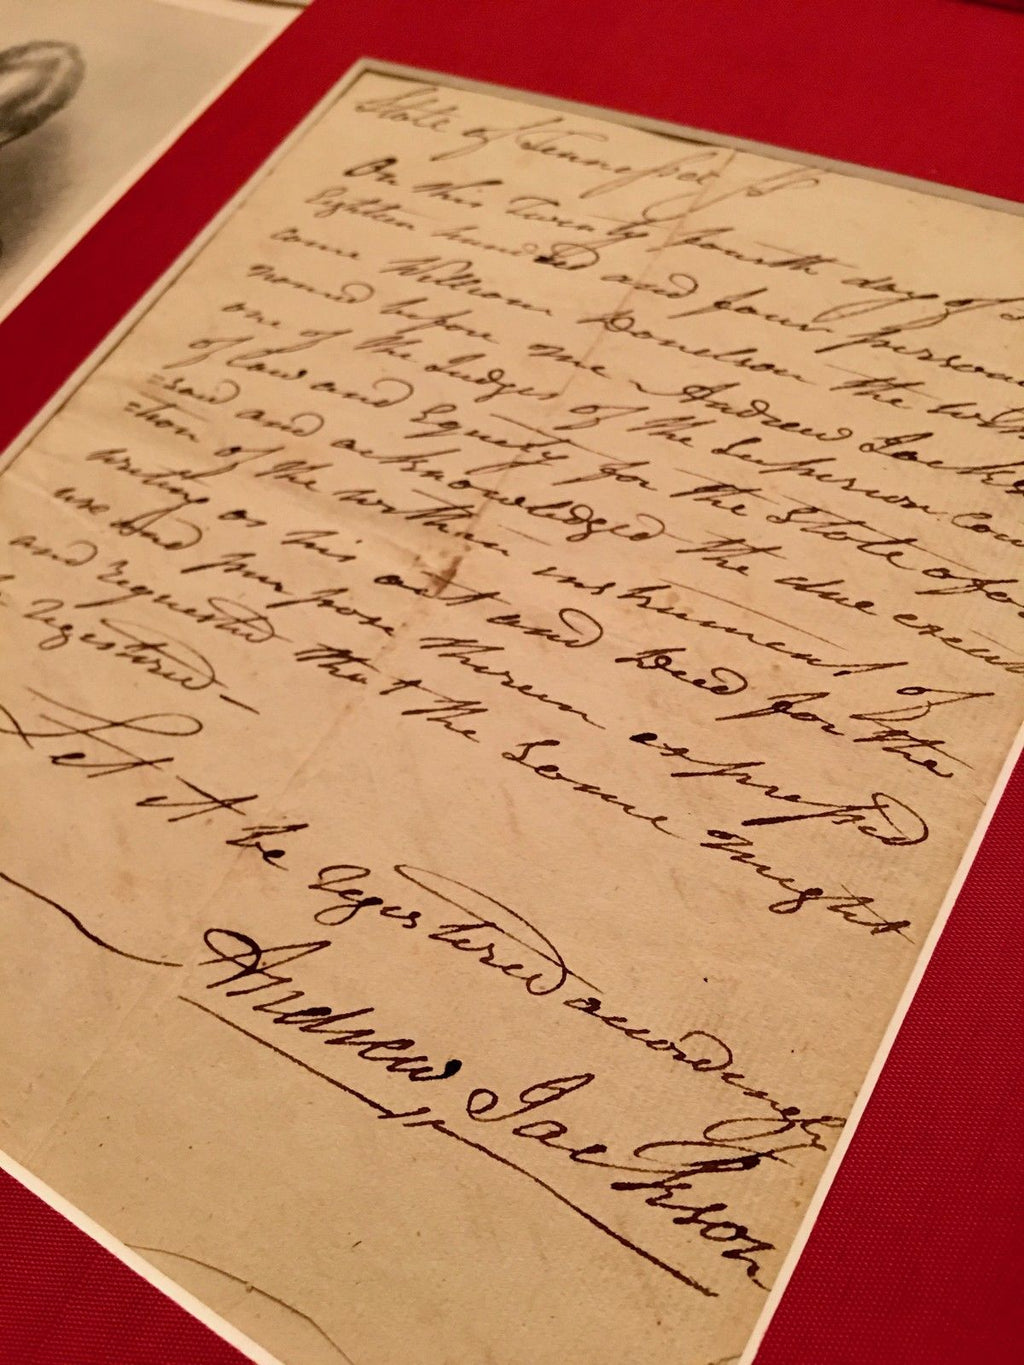 State of Tennessee
On this Twenty fourth day of
Eighteen hundred and four persona
came William Donelson the with
named before me Andrew Jacks
one of the Judges of the Superior Cou
of Law and Equity for the State afore
=said and acknowledged the due execu
=tion of the within instrument of
writing as his act and Deed for the
use and purpose therein expressed
and requested that the same might
Registered—
Let it be Registered accordingly
Andrew Jackson